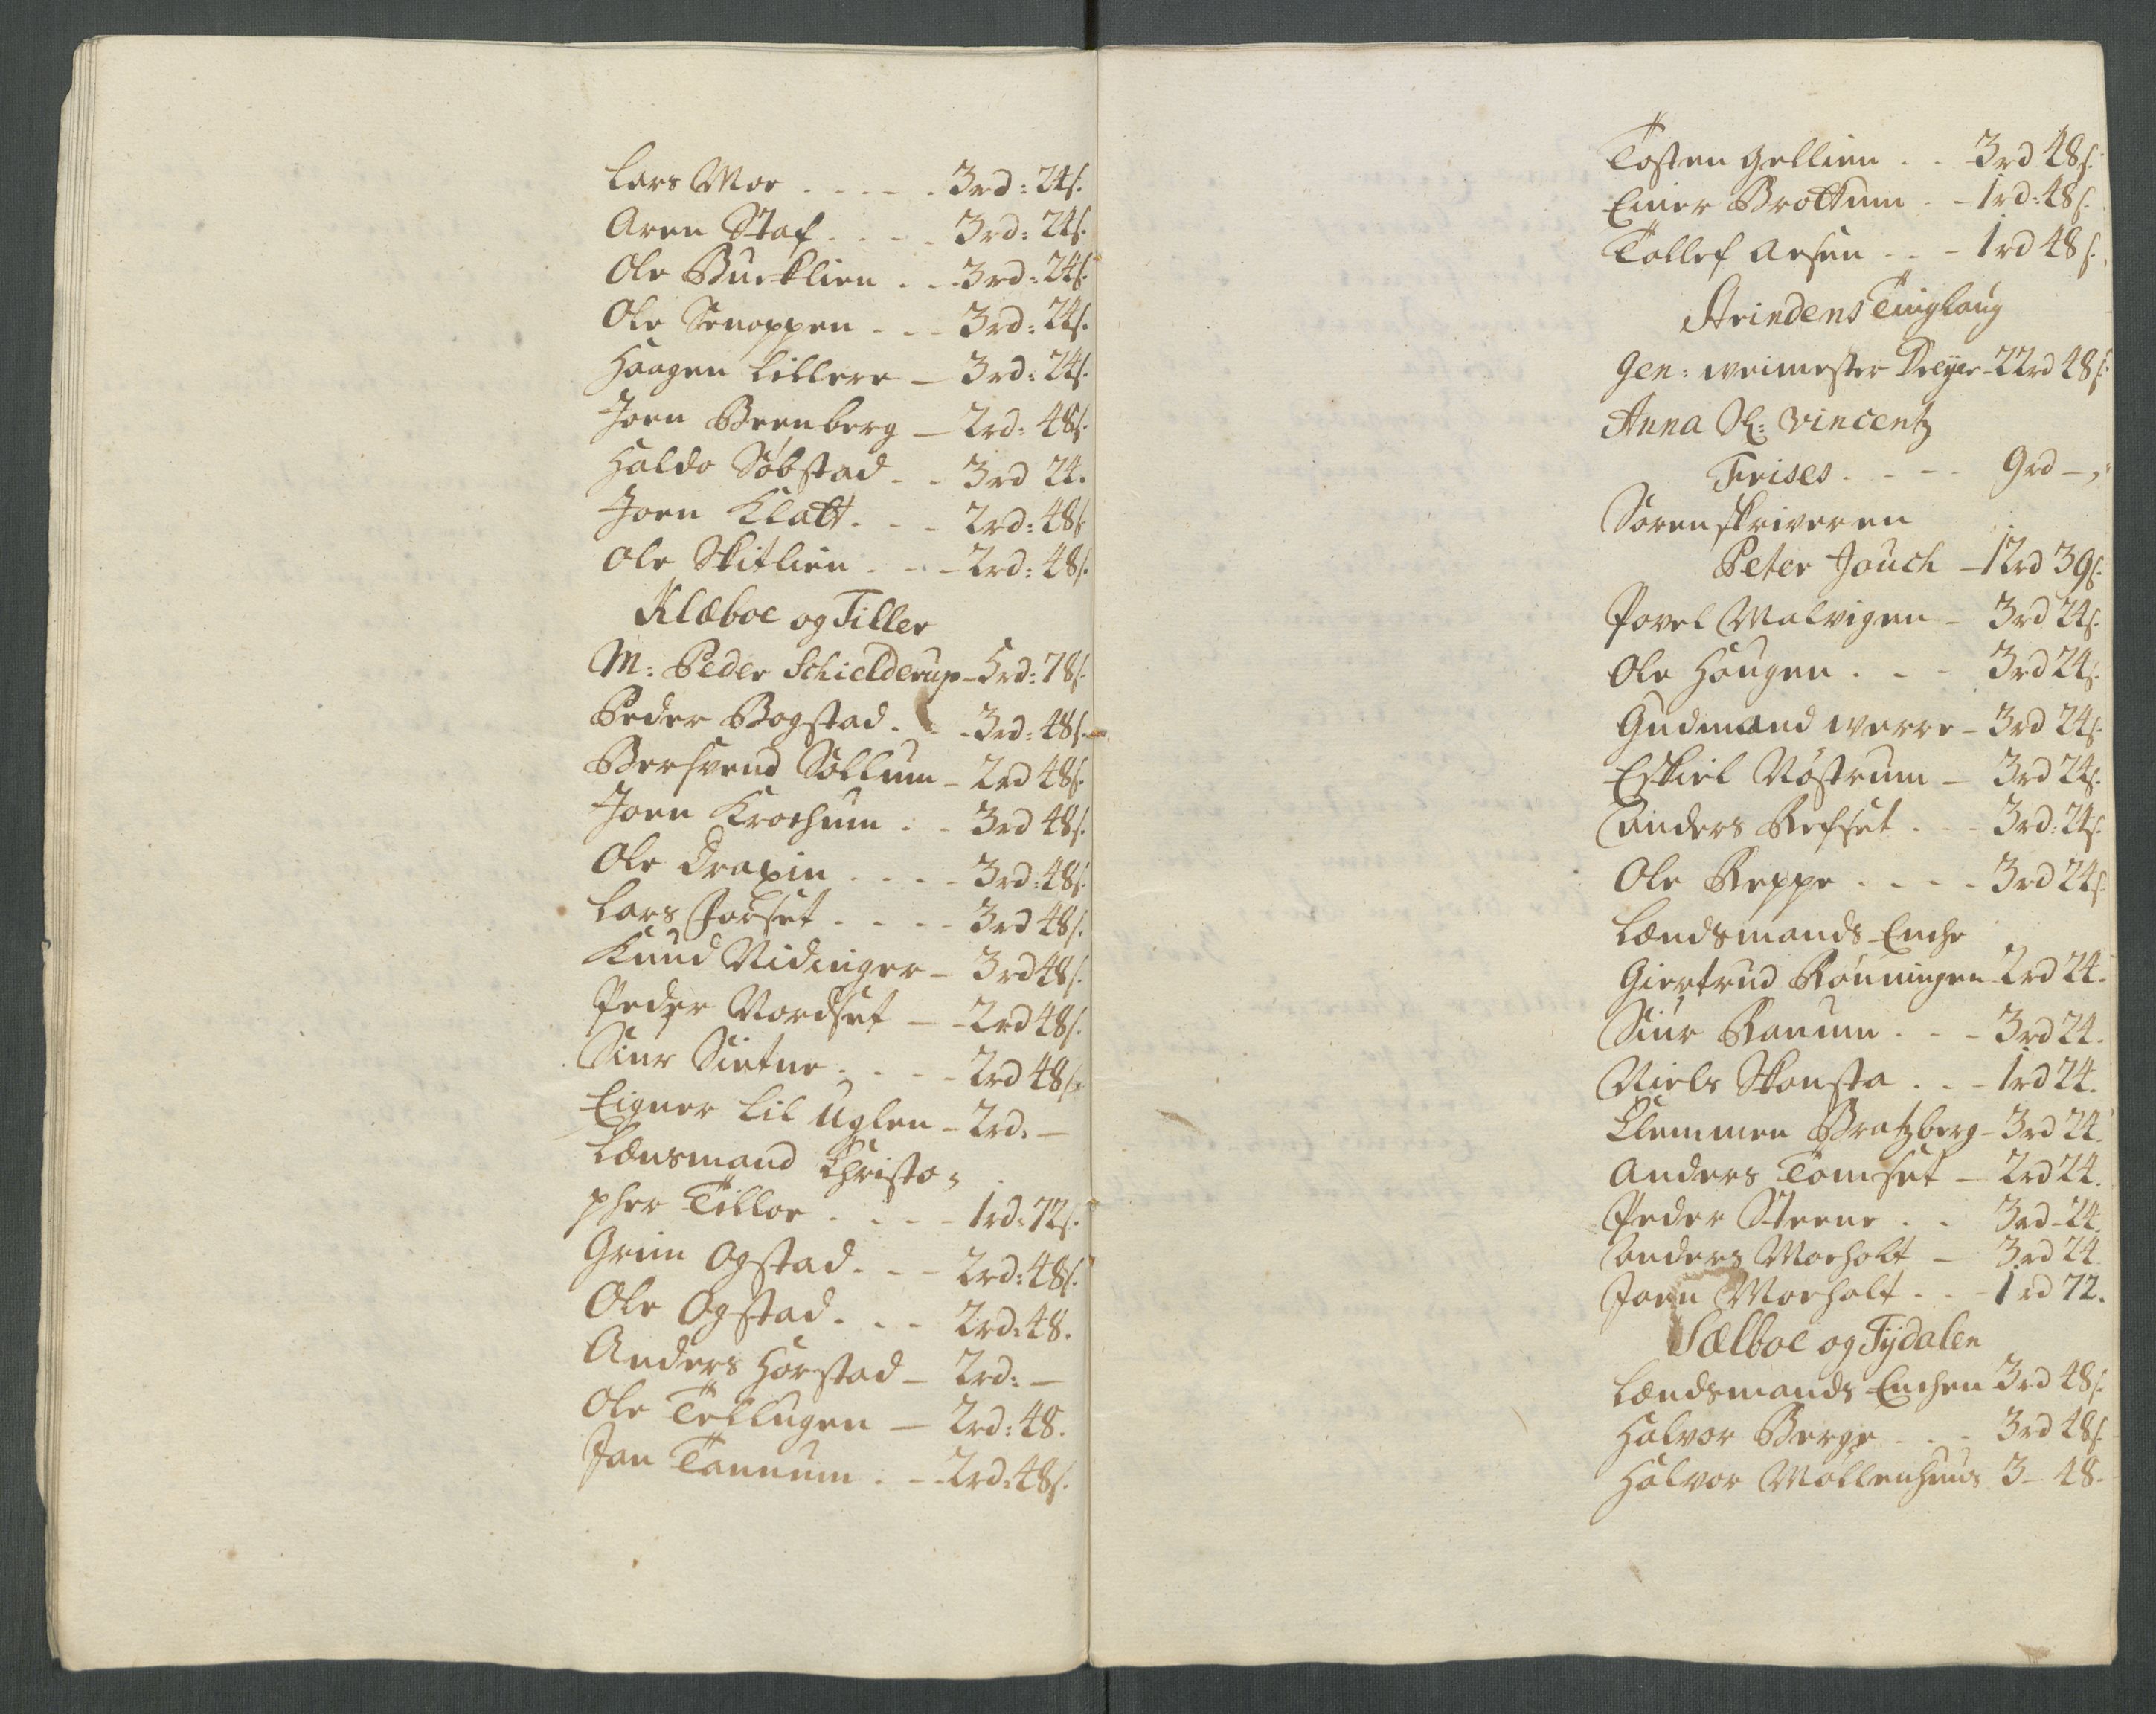 Lars Moe - - - - 3rd: 24s.
Aren Staf - - - - 3rd: 24s.
Ole Burklien - - 3rd: 24s.
Ole Snoppen - - - 3rd: 24s.
Haagen Lillere - 3rd: 24s.
Joen Brenberg - 2rd: 48s.
Haldo Söbstad - - 3rd 24.
Joen Klatt - - - 2rd: 48s
Ole Skitlien - - - 2rd: 48s.
Klæboe og Tiller
M: Peder Schielderup - 5rd: 78s.
Peder Bogstad - - 3rd: 48s.
Bersvend Söllum - 2rd 48s.
Joen Krochum - - 3rd 48s.
Ole Draxin - - - - 3rd: 48s.
Lars Forset - - - - 3rd 48s.
Knud Nidinger - 3rd 48s.
Peder Nordset - - 2rd 48s.
Siur Sietne - - - - 2rd 48s.
Eigner Lil Uglen - 2rd. -
Lensmand Christo-
pher Tilloe - - - - 1rd: 72s.
Grim Ogstad - - - 2rd: 48s.
Ole Ogstad - - - 2rd: 48.
Anders Horstad - 2rd: -
Ole Tellugen - 2rd: 48.
Jan Tannum - - 2rd: 48s.
Tosten Gellien - - 3rd 48s.
Einer Brottum - - 1rd: 48s.
Tollef Aesen - - - 1rd 48s.
Strindens Tinglaug
Gen: weimester Dreyer - 22rd 48s.
Anna Sl: Vincentz
Frises - - - - 9rd - ,
Sorenskriveren
Peter Jouch - 12rd 39s.
Povel Malvigen - 3rd 24s.
Ole Haugen - - - 3rd 24s.
Gudmand Werre - 3rd 24s.
Eskiel Nöstrum - 3rd 24s.
Anders Refset - - - 3rd: 24s.
Ole Reppe - - - - 3rd 24s.
Lændsmands Enche
Giertrud Rönningen 2rd 24.
Siur Ranum - - - 3rd 24.
Niels Skonsta - - - 1rd 24.
Clemmen Bratzberg - 3rd 24.
Anders Tomset - 2rd 24.
Peder Steene - - 3rd - 24.
Anders Moeholt - 3rd 24
Joen Moeholt - - - 1rd 72.
Sælboe og Tydalen
Lændsmands Enchen 3rd 48s.
Halvor Berge - - - 3rd 48s.
Halvor Mollenhuus 3 - 48.